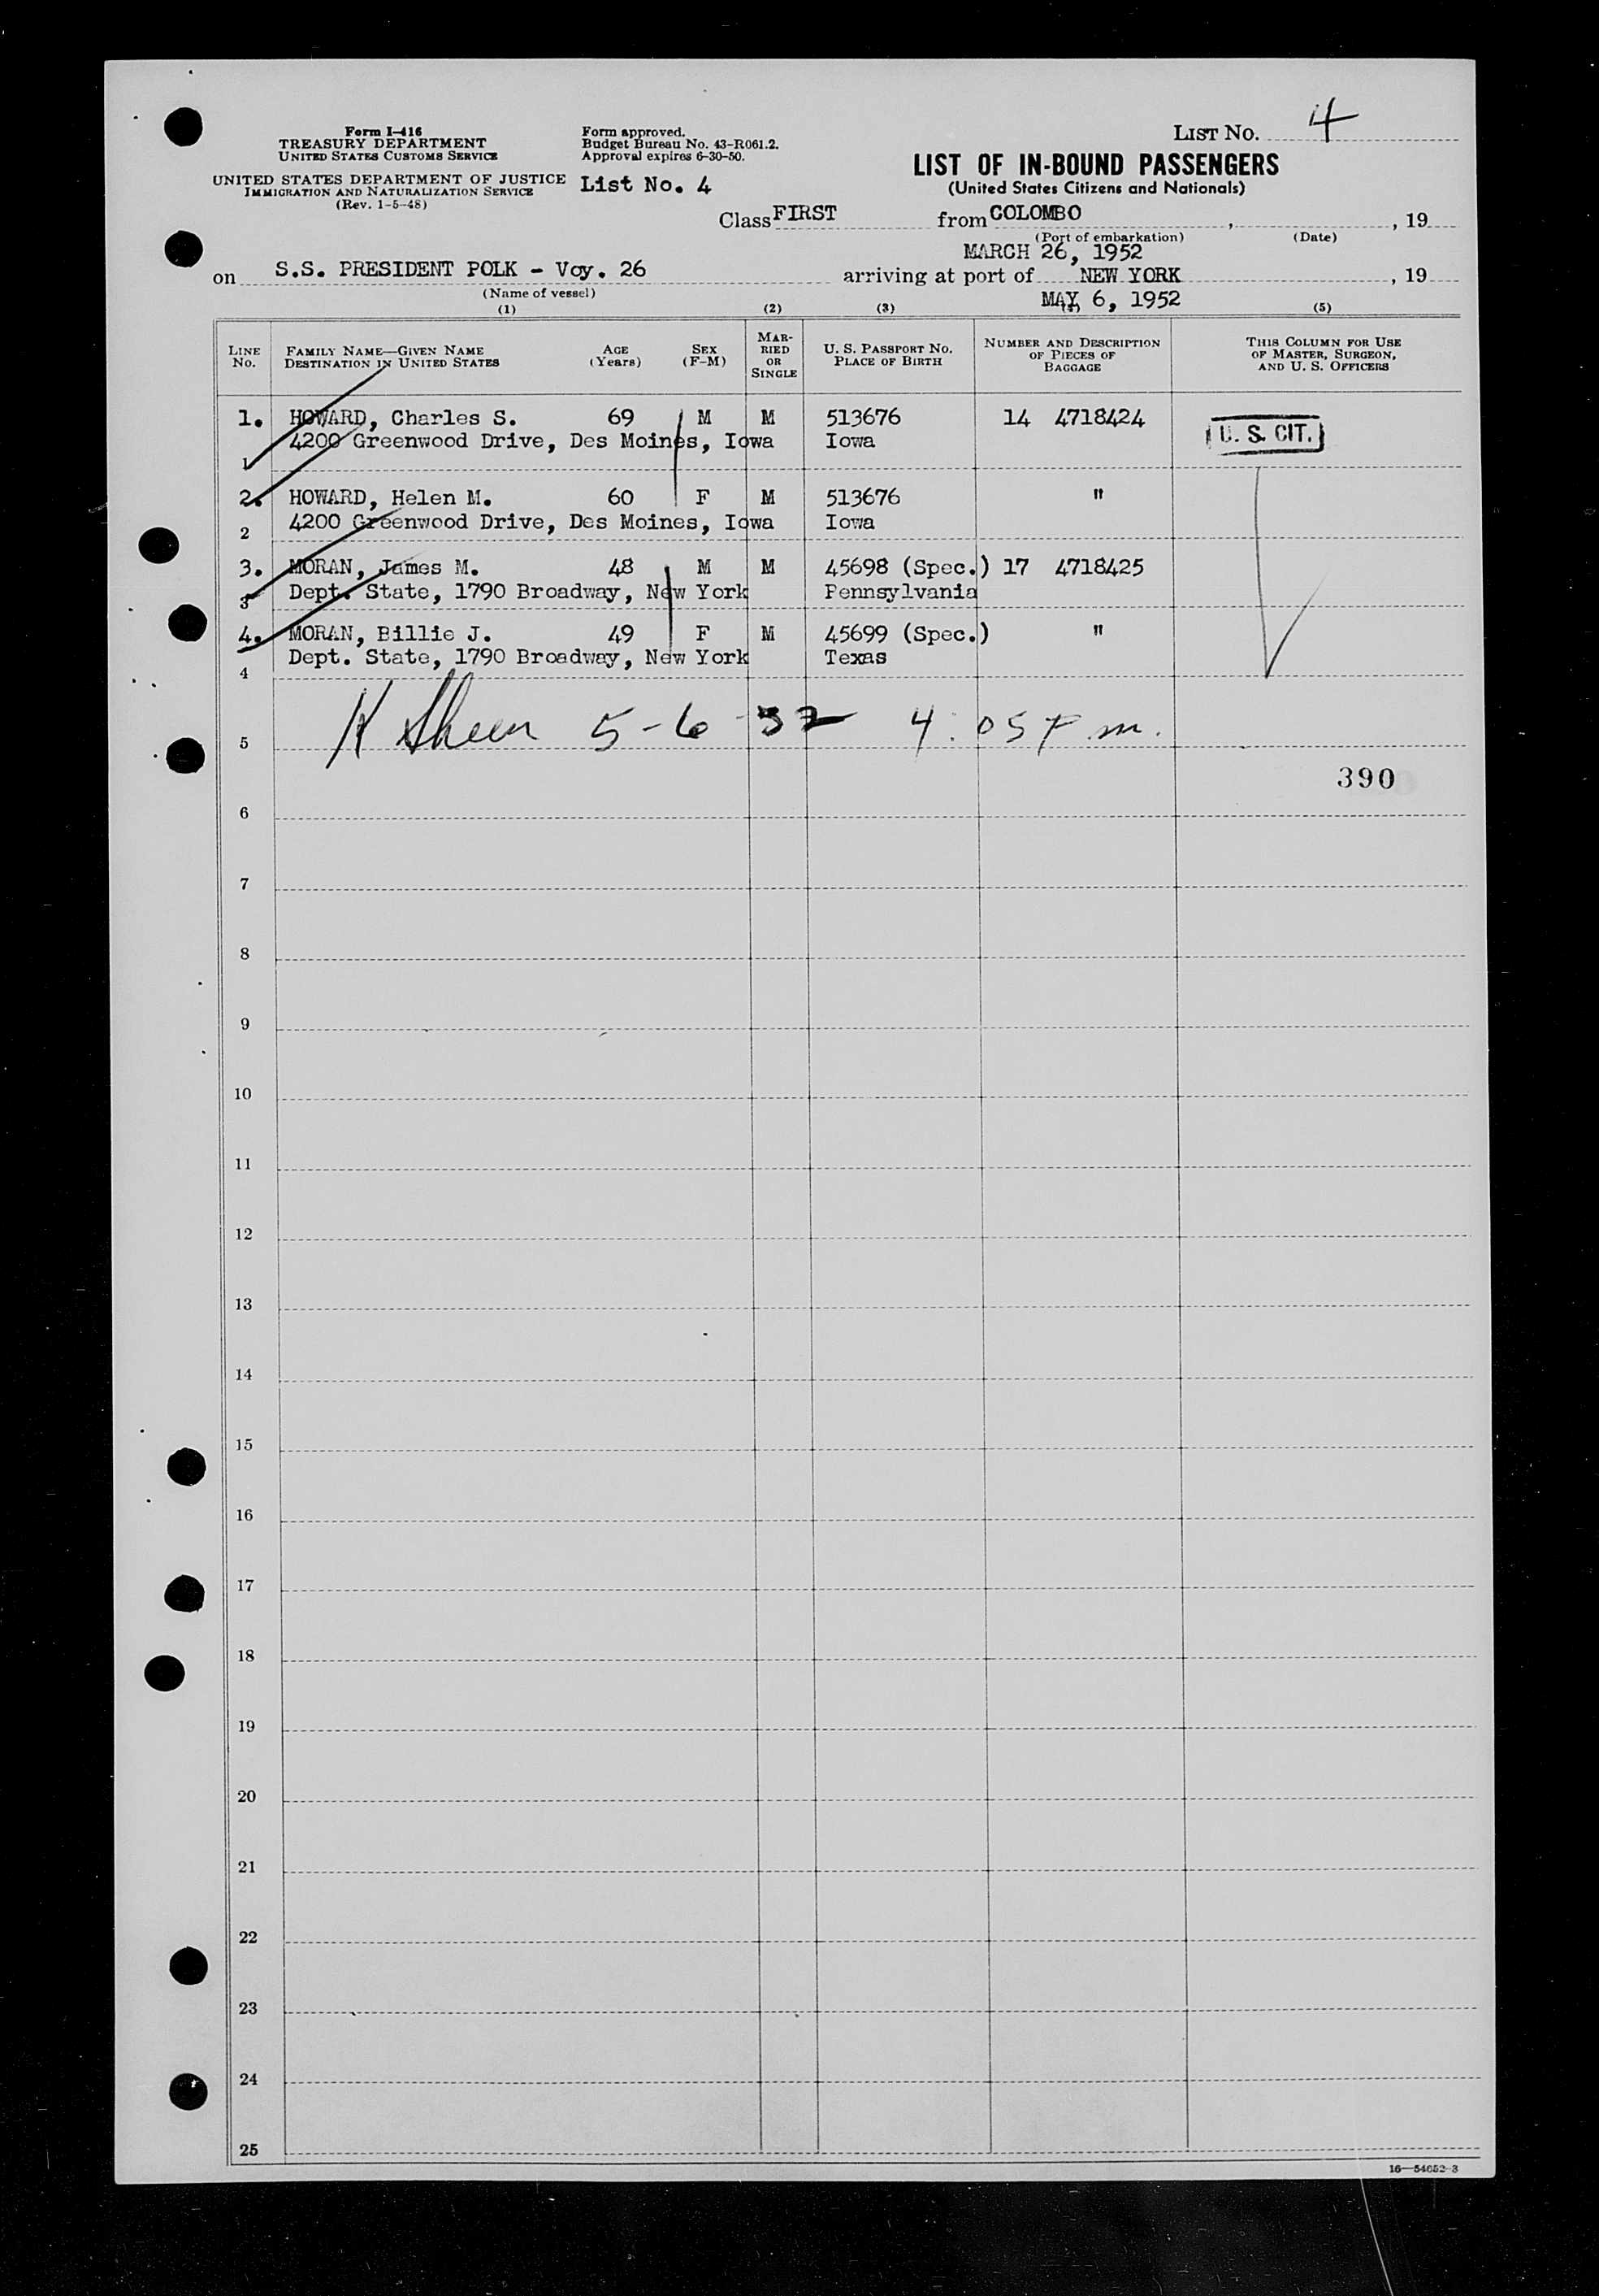 Form I-416
TREASURY DEPARTMENT
UNITED STATES CUSTOMS SERVICE
UNITED STATES DEPARTMENT OF JUSTICE
IMMIGRATION AND NATURALIZATION SERVICE
(Rev. 1-5-48)
Form approved.
Budget Bureau No. 43-R061.2.
Approval expires 6-30-50.
List No. 4
LIST No. 4
LIST OF IN-BOUND PASSENGERS
(United States Citizens and Nationals)
Class FIRST from COLOMBO , , 19
(Port of embarkation) (Date)
MARCH 26, 1952
on S.S. PRESIDENT POLK - Voy. 26 arriving at port of NEW YORK , 19
(Name of vessel) MAY 6, 1952
(1) (2) (3) (4) (5)
LINE No. FAMILY NAME—GIVEN NAME DESTINATION IN UNITED STATES AGE (Years) SEX (F-M) MARRIED OR SINGLE U. S. PASSPORT NO. PLACE OF BIRTH NUMBER AND DESCRIPTION OF PIECES OF BAGGAGE THIS COLUMN FOR USE OF MASTER, SURGEON, AND U. S. OFFICERS
1. HOWARD, Charles S. 69 M M 513676 14 4718424 U. S. CIT.
1 4200 Greenwood Drive, Des Moines, Iowa Iowa
2. HOWARD, Helen M. 60 F M 513676 "
2 4200 Greenwood Drive, Des Moines, Iowa Iowa
3. MORAN, James M. 48 M M 45698 (Spec.) 17 4718425
3 Dept. State, 1790 Broadway, New York Pennsylvania
4. MORAN, Billie J. 49 F M 45699 (Spec.) "
4 Dept. State, 1790 Broadway, New York Texas
5 5-6-52 4:05 P m.
390
6
7
8
9
10
11
12
13
14
15
16
17
18
19
20
21
22
23
24
25
16—54652-3